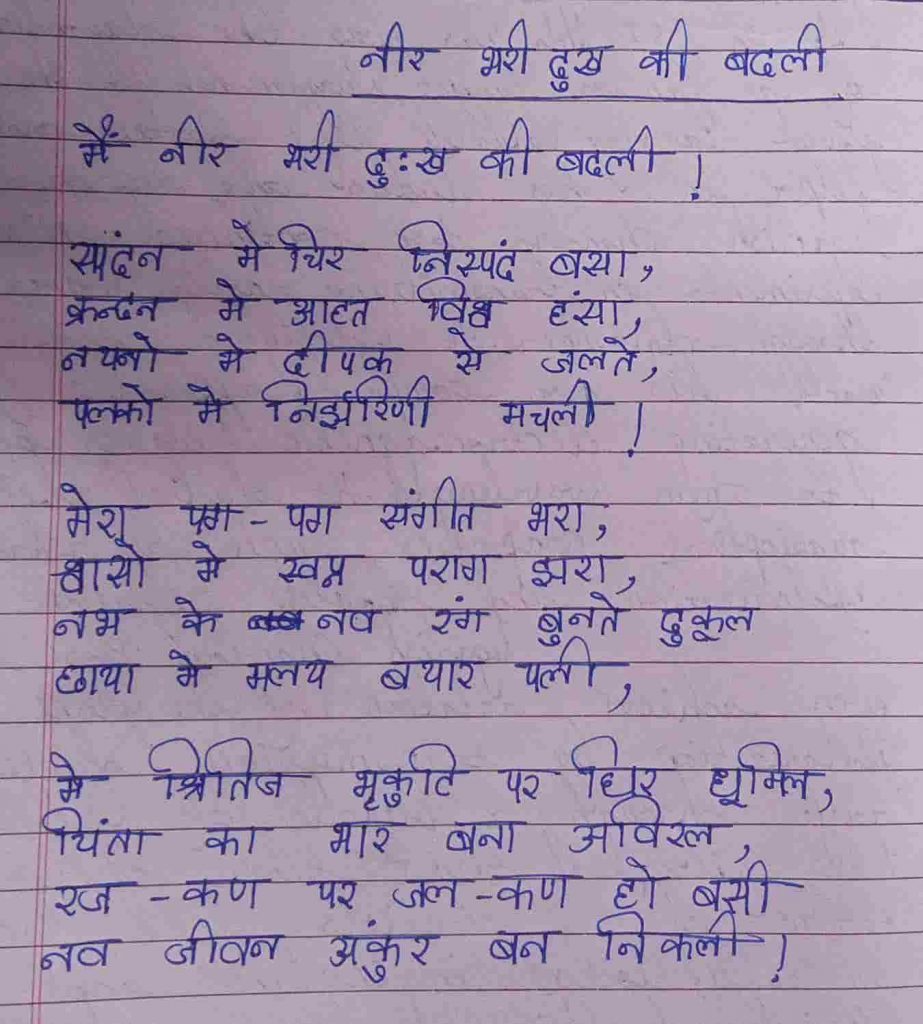 नीर भरी दुख की बदली
मैं नीर भरी दुःख की बदली !
स्पंदन मे चिर निस्पंद बसा,
क्रन्दन मे आहत विश्व हंसा,
नयनो मे दीपक से जलते,
पलको मे निर्झरिणी मचली !
मेरा पग - पग संगीत भरा,
श्वासो मे स्वप्न पराग झरा,
नभ के नव रंग बुनते दुकूल
छाया मे मलय बयार पली,
मे क्षितिज भृकुटि पर घिर धूमिल,
चिंता का भार बना अविरल,
रज - कण पर जल - कण हो बसी
नव जीवन अंकुर बन निकली !